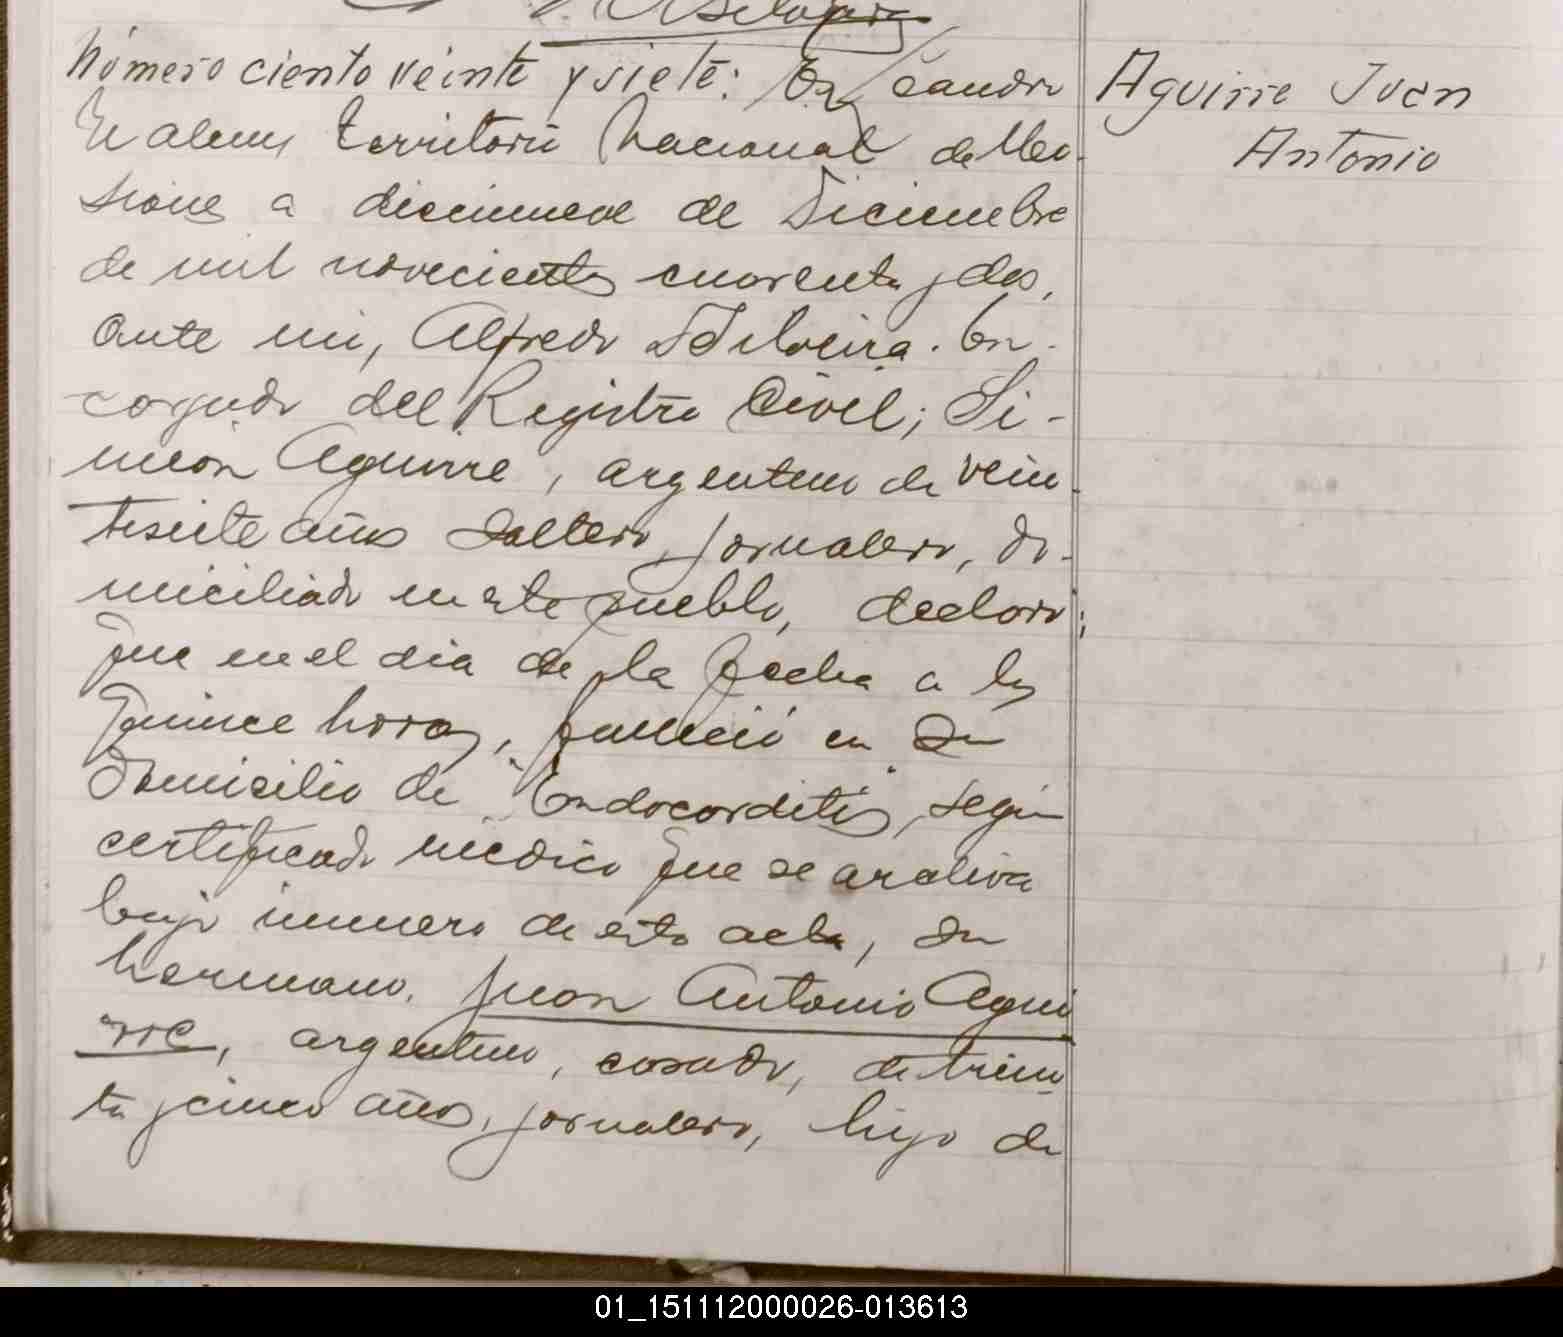 Número ciento veinte y siete: En Leandro
N alem, territorio Nacional de Mi-
siones a diecinueve de Diciembre
de mil novecientos cuarenta y dos,
ante mi, Alfredo Silveira. En-
cargado del Registro Civil; Si-
meón Aguirre, argentino de vein
tisiete años soltero, jornalero, do-
miciliado en este pueblo, declaro;
que en el dia de la fecha a las
quince horas, falleció en su
domicilio de "Endocarditis", según
certificado médico que se archiva
bajo número de esta acta, su
hermano. Juan Antonio Agui
rre, argentino, casado, de trein
ta y cinco años, jornalero, hijo de
Aguirre Juan
Antonio
01_151112000026-013613